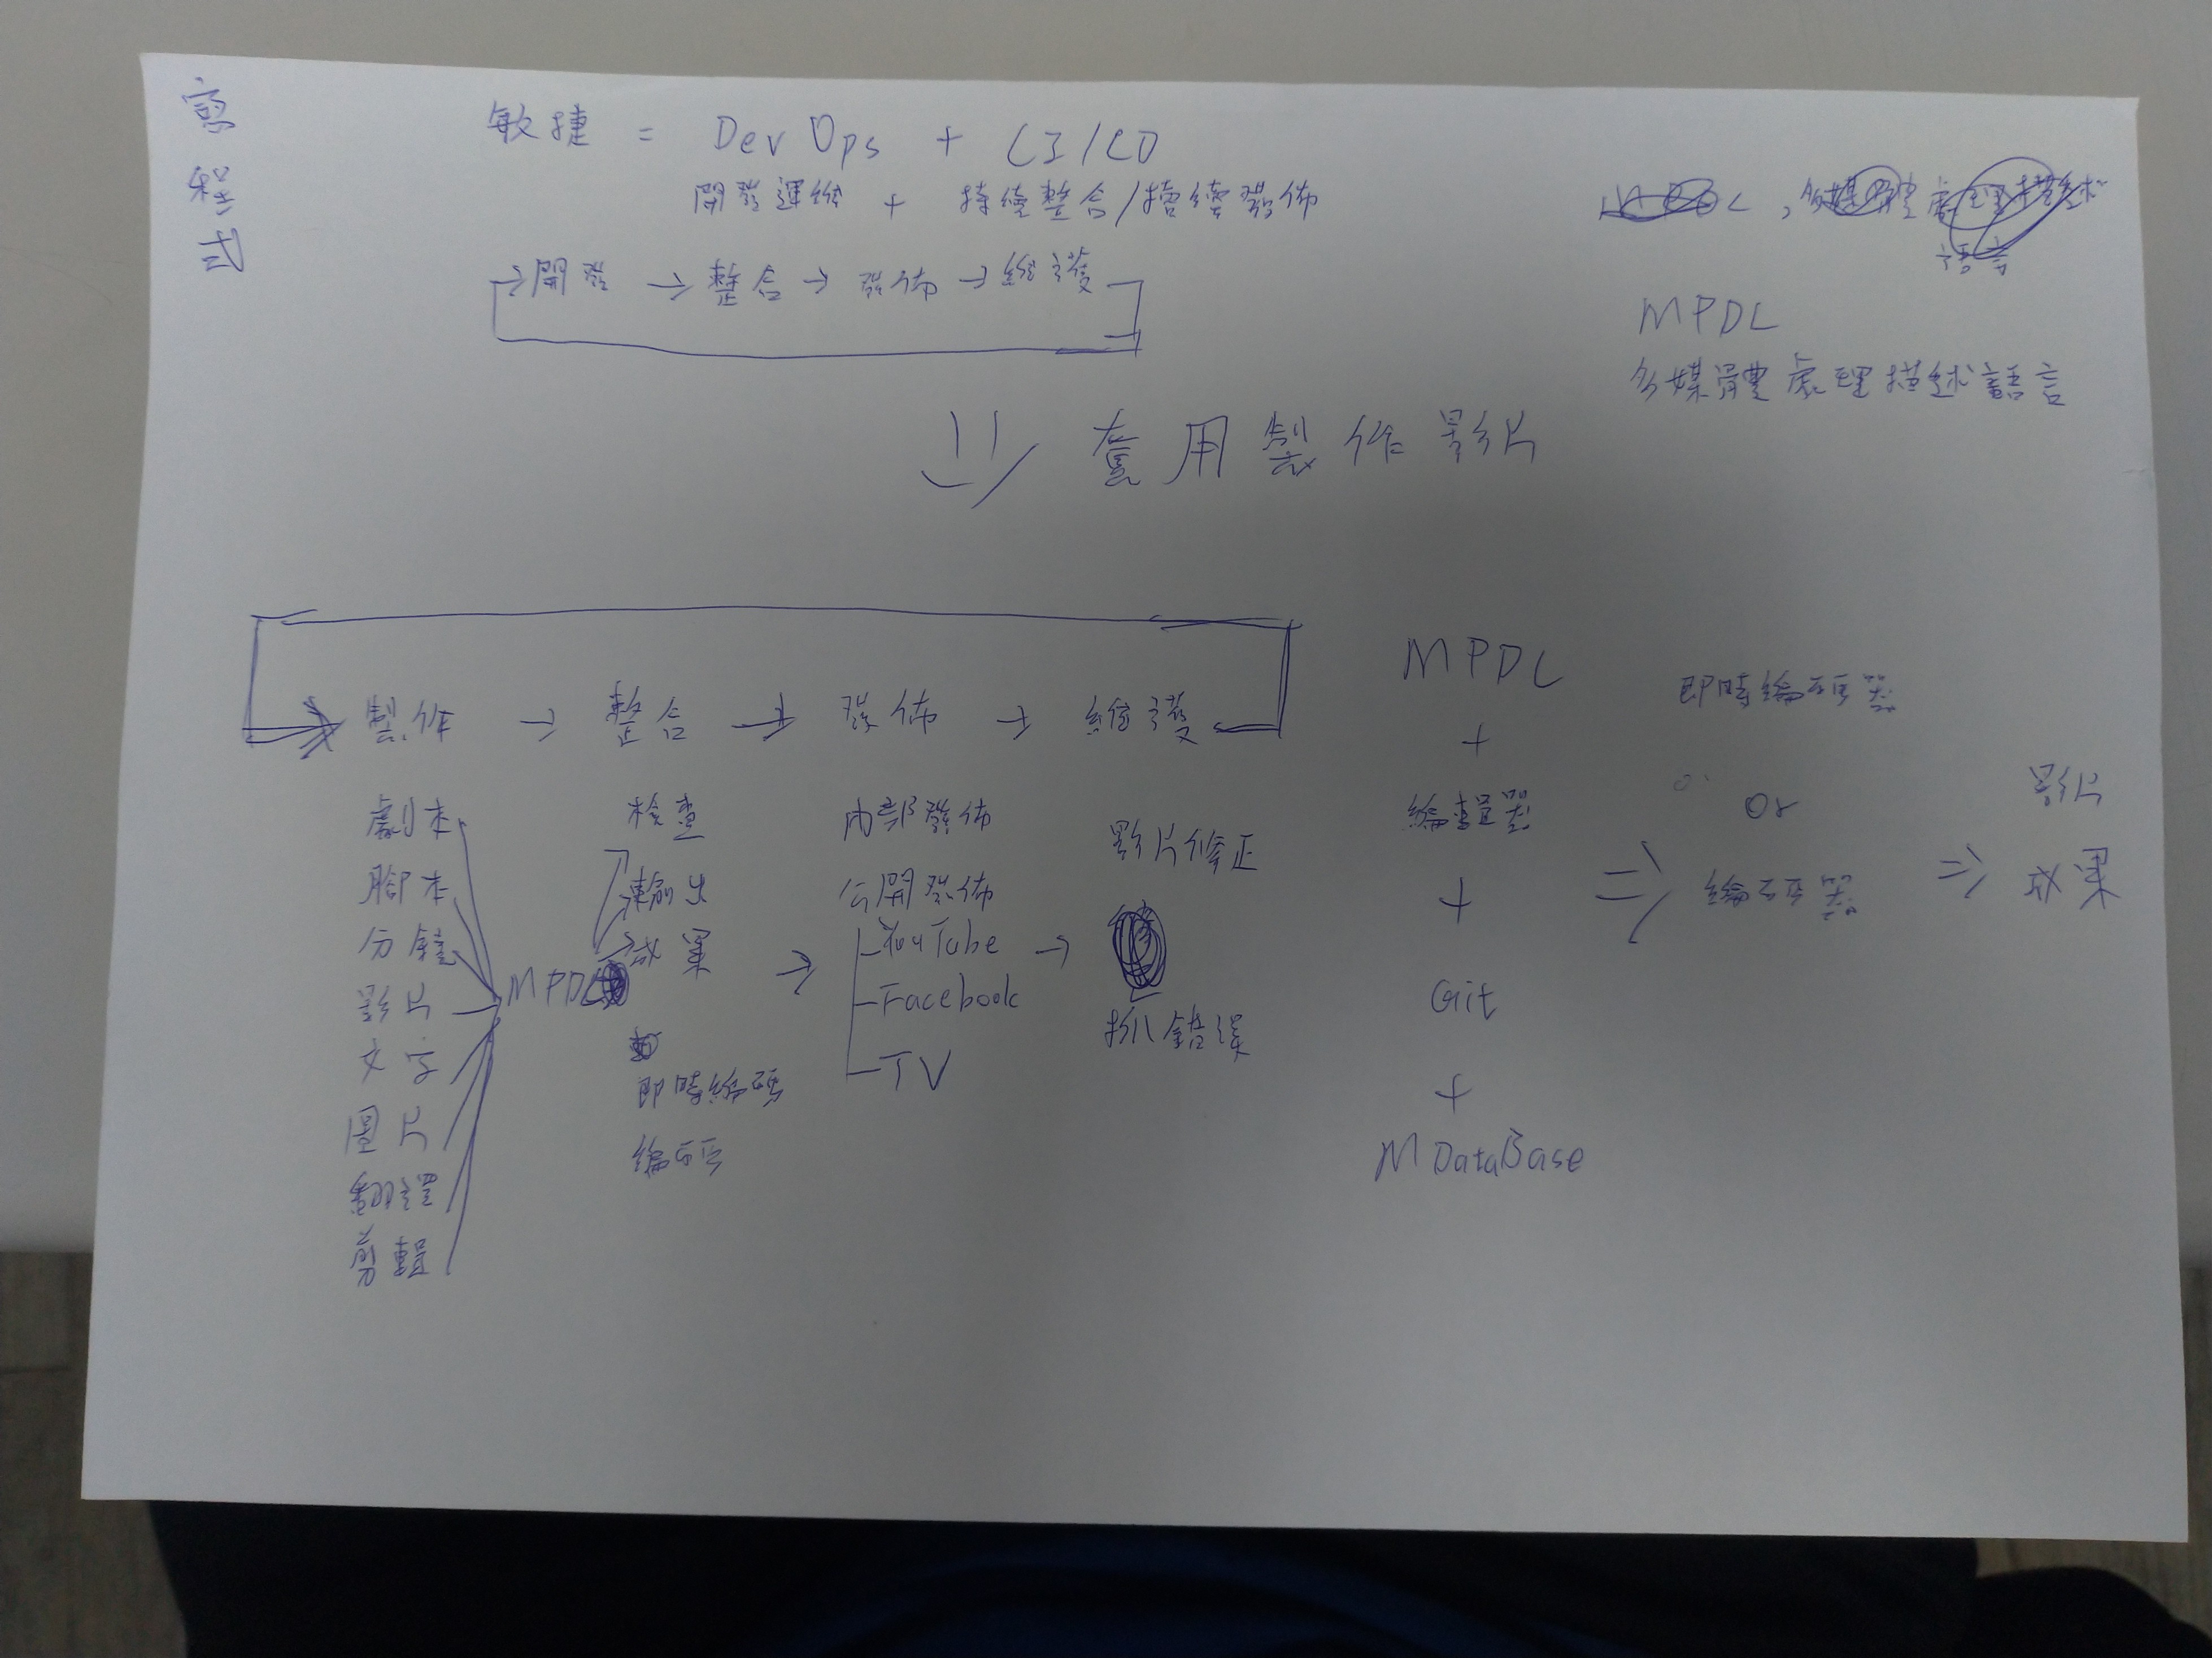 寫程式
敏捷 = DevOps + CI/CD
開發運維 + 持續整合/持續發佈
→開發 → 整合 → 發佈 → 維護
語言
MPDL
多媒體處理描述語言
套用製作影片
製作 → 整合 → 發佈 → 維護
劇本
腳本
分鏡
影片
文字
圖片
翻譯
剪輯
MPDL
檢查
輸出
成果
即時編碼
編碼
內部發佈
公開發佈
YouTube
Facebook
TV
影片修正
抓錯誤
MPDL
+
編輯器
+
Git
+
MDataBase
⇒
即時編碼器
or
編碼器
⇒
影片
成果